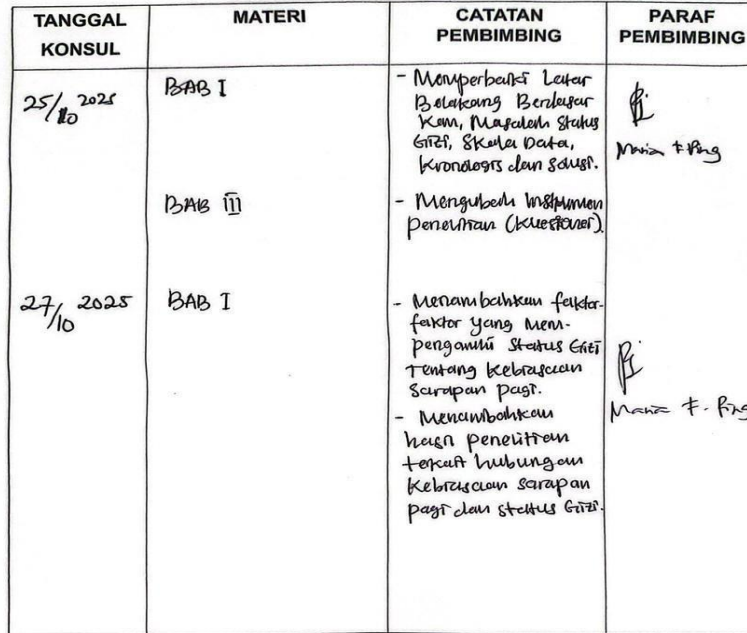 TANGGAL KONSUL
MATERI
CATATAN PEMBIMBING
PARAF PEMBIMBING
25/10 2025
BAB I
- Memperbaiki Latar
Belakang Berdasar
kan, Masalah Status
Gizi, Skala Data,
Kronologis dan solusi.
Maria F. Ping
BAB III
- Mengubah Instrumen
penelitian (Kuesioner).
27/10 2025
BAB I
- Menambahkan faktor-
faktor yang mem-
pengaruhi Status Gizi
Tentang Kebiasaan
Sarapan pagi.
- Menambahkan
hasil penelitian
terkait hubungan
Kebiasaan sarapan
pagi dan status Gizi.
Maria F. Ping